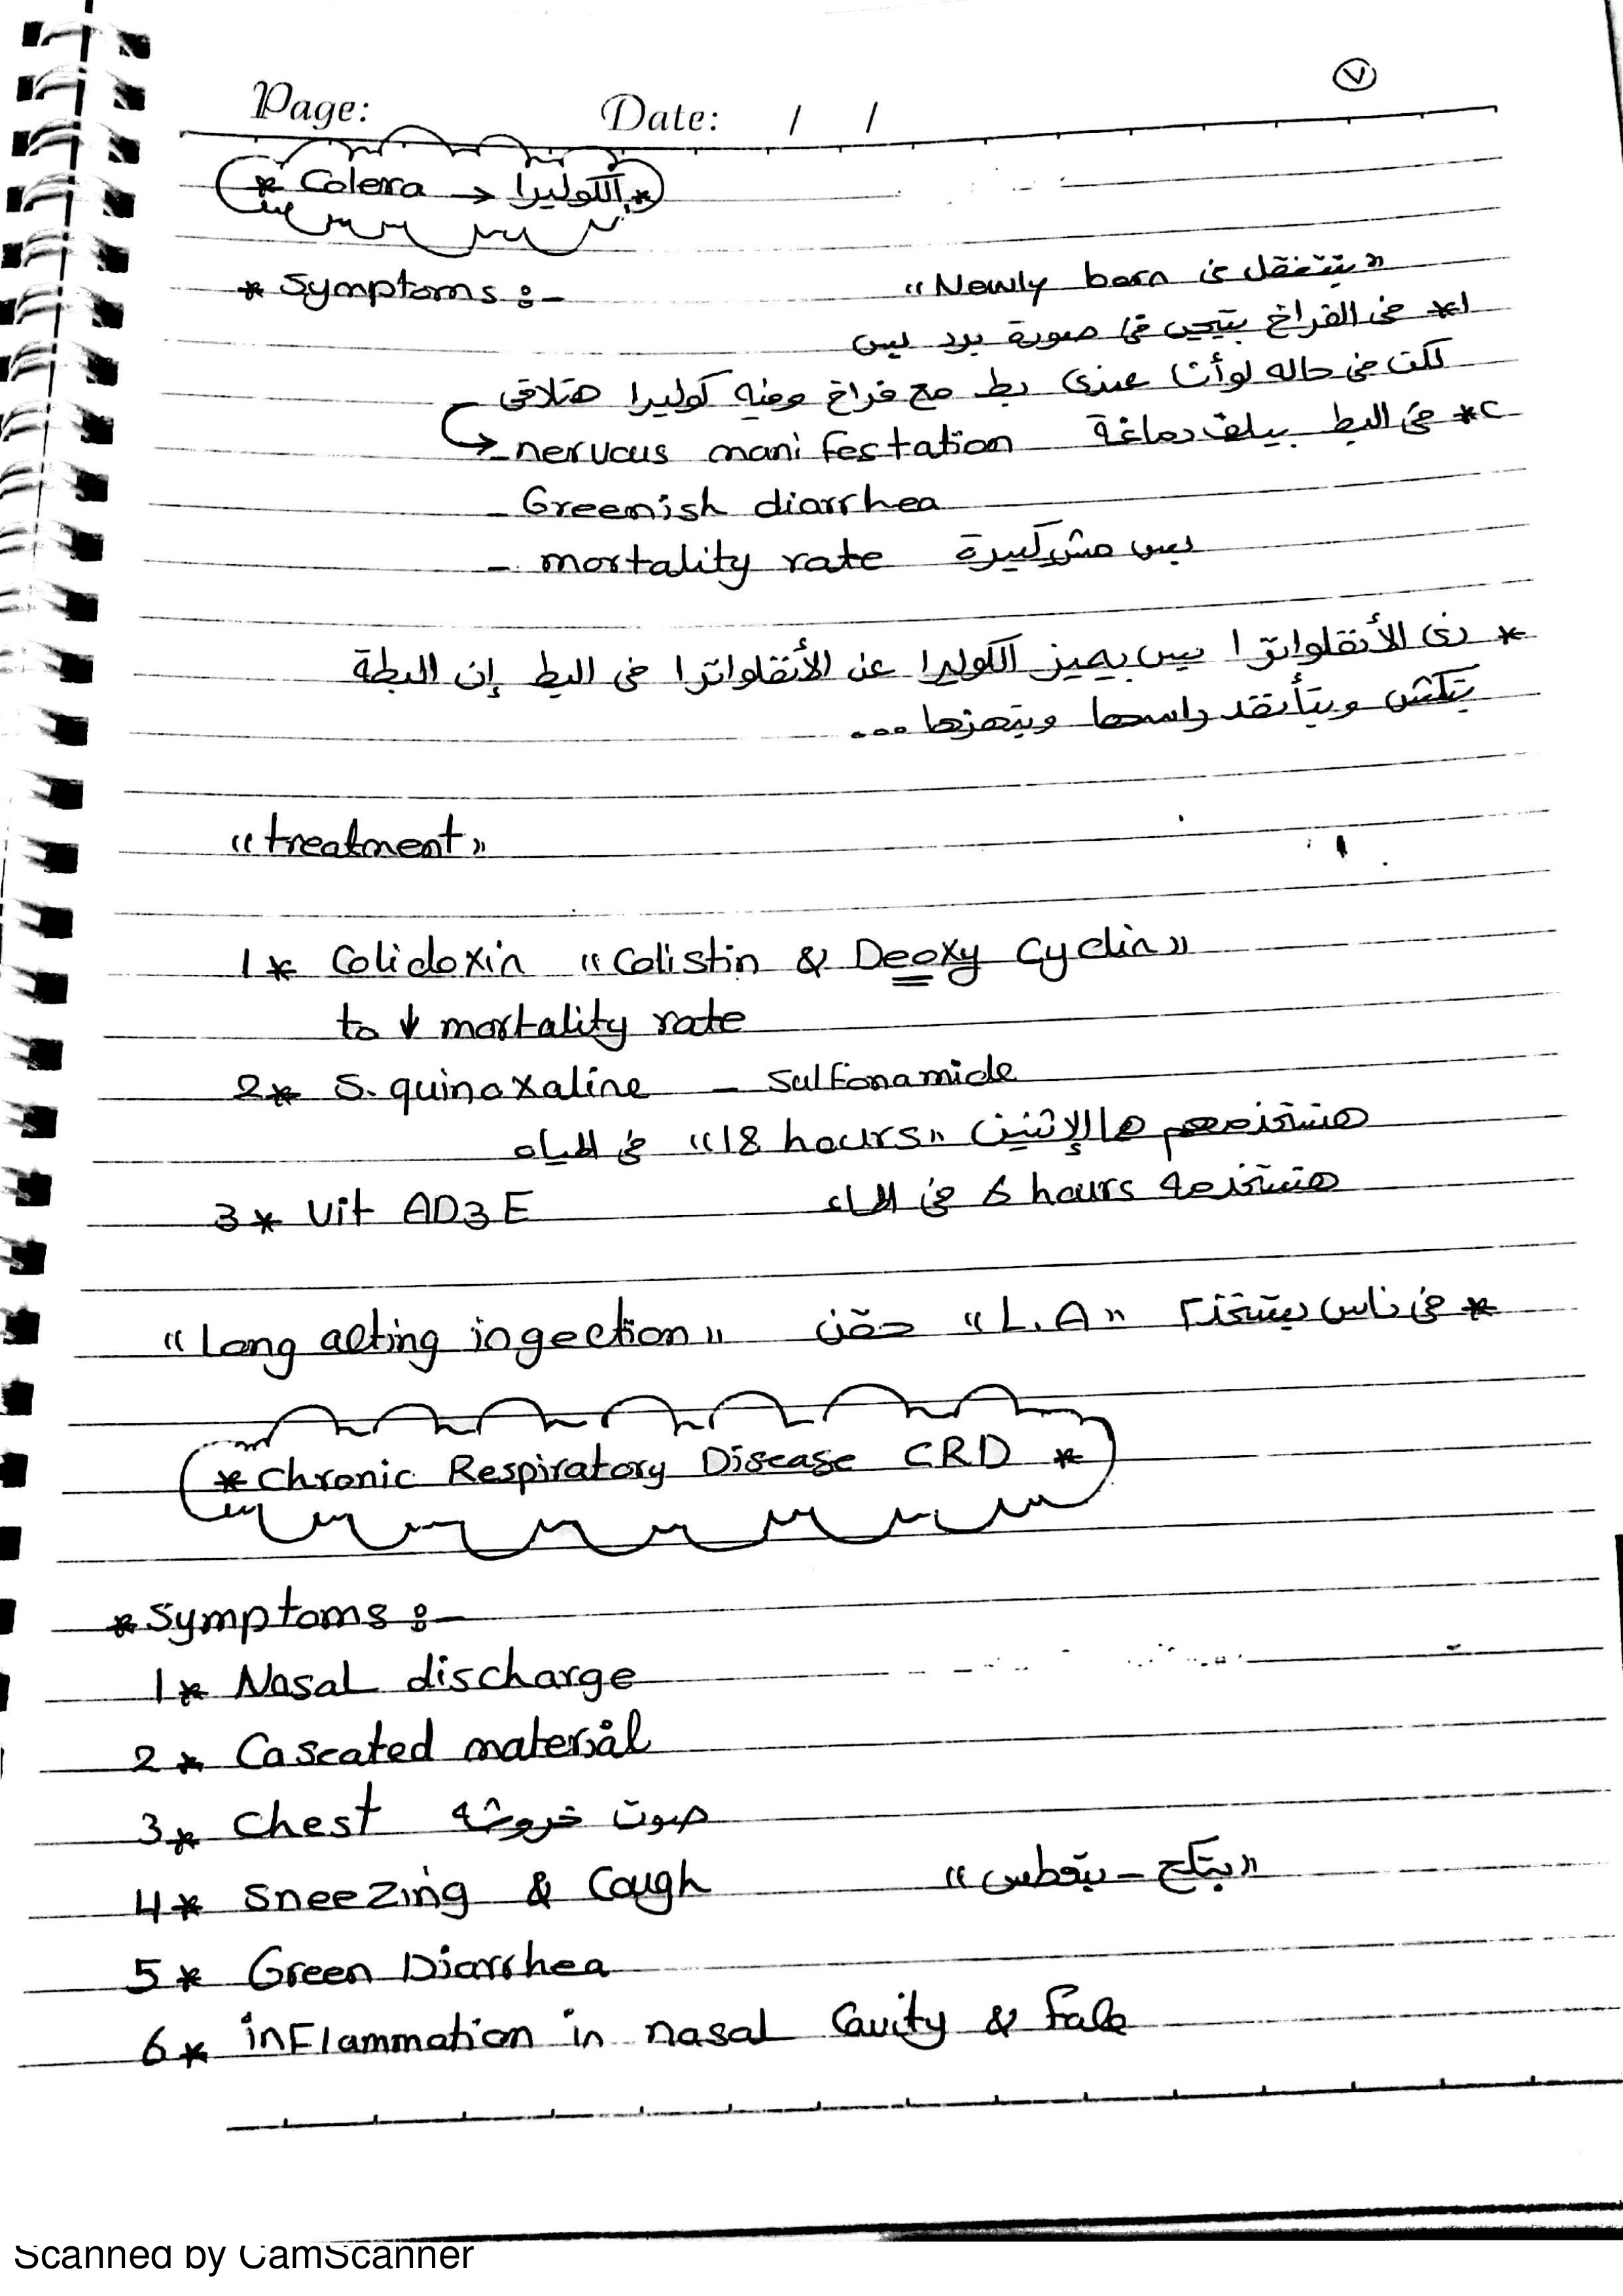 ٧
Page: Date: / /
* Colera → الكوليرا *
* Symptoms :- "Newly born بيتنقل في"
١* في الفراخ بتيجي في صورة برد بس
لكن في حاله لو أنا عندى بط مع فراخ وفيه كوليرا هتلاقى
٢* في البط بيلف دماغة nervous manifestation
- Greenish diarrhea
- mortality rate بس مش كبيرة
* زى الأنفلوانزا بس بيميز الكوليرا عن الأنفلوانزا فى البط إن البطة
بتكش وبتأنقد راسها وبتهزها ...
"treatment"
1* Colidoxin "Colistin & Deoxy Cyclin"
to ↓ mortality rate
2* S. quinoxaline - Sulfonamide
هنستخدمهم ها الإتنين "18 hours" في المياه
3* Vit AD3E هنستخدمه 6 hours في الماء
* في ناس بيستخدم "L.A" حقن "Long acting ingection"
* Chronic Respiratory Disease CRD *
* Symptoms :-
1* Nasal discharge
2* Caseated material
3* Chest صوت خروشه
4* Sneezing & Cough "بتكح - بتعطس"
5* Green Diarrhea
6* inFlammation in nasal Cavity & Face
Scanned by CamScanner